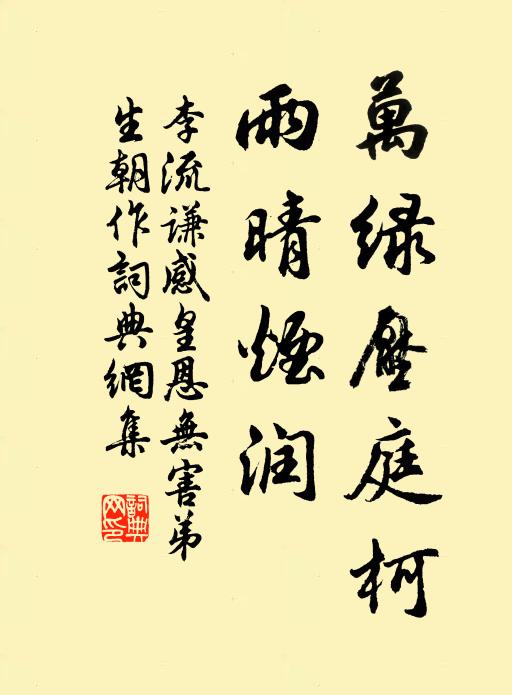 萬緑壓庭柯
雨晴煙润
李流谦感皇恩無害弟
生朝作詞典網集
詞典网印